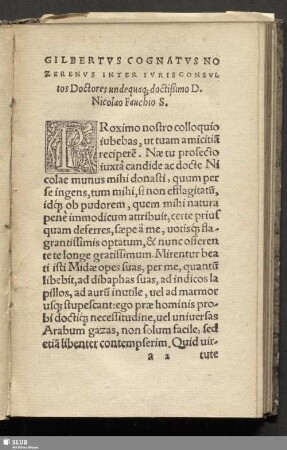 GILBERTVS COGNATVS NO
ZERENVS INTER IVRISCONSVL
tos Doctores undequaq; doctißimo D.
Nicolao Fauchio S.
PRoximo nostro colloquio
iubebas, ut tuam amicitiā
reciperē. Næ tu profecto
iuxtà candide ac docte Ni
colae munus mihi donasti, quum per
se ingens, tum mihi, si non efflagitatū,
idq́; ob pudorem, quem mihi natura
penè immodicum attribuit, certe prius
quam deferres, sæpe à me, uotisq́; fla
grantissimis optatum, & nunc offeren
te te longe gratissimum. Mirentur bea
ti isti Midæ opes suas, per me, quantū
libebit, ad dibaphas suas, ad indicos la
pillos, ad aurū inutile, uel ad marmor
usq́; stupescant: ego præ hominis pro
bi doctiq́; necessitudine, uel uniuersas
Arabum gazas, non solum facile, sed
etiā libenter contempserim. Quid uir-
a 2 tute
SLUB